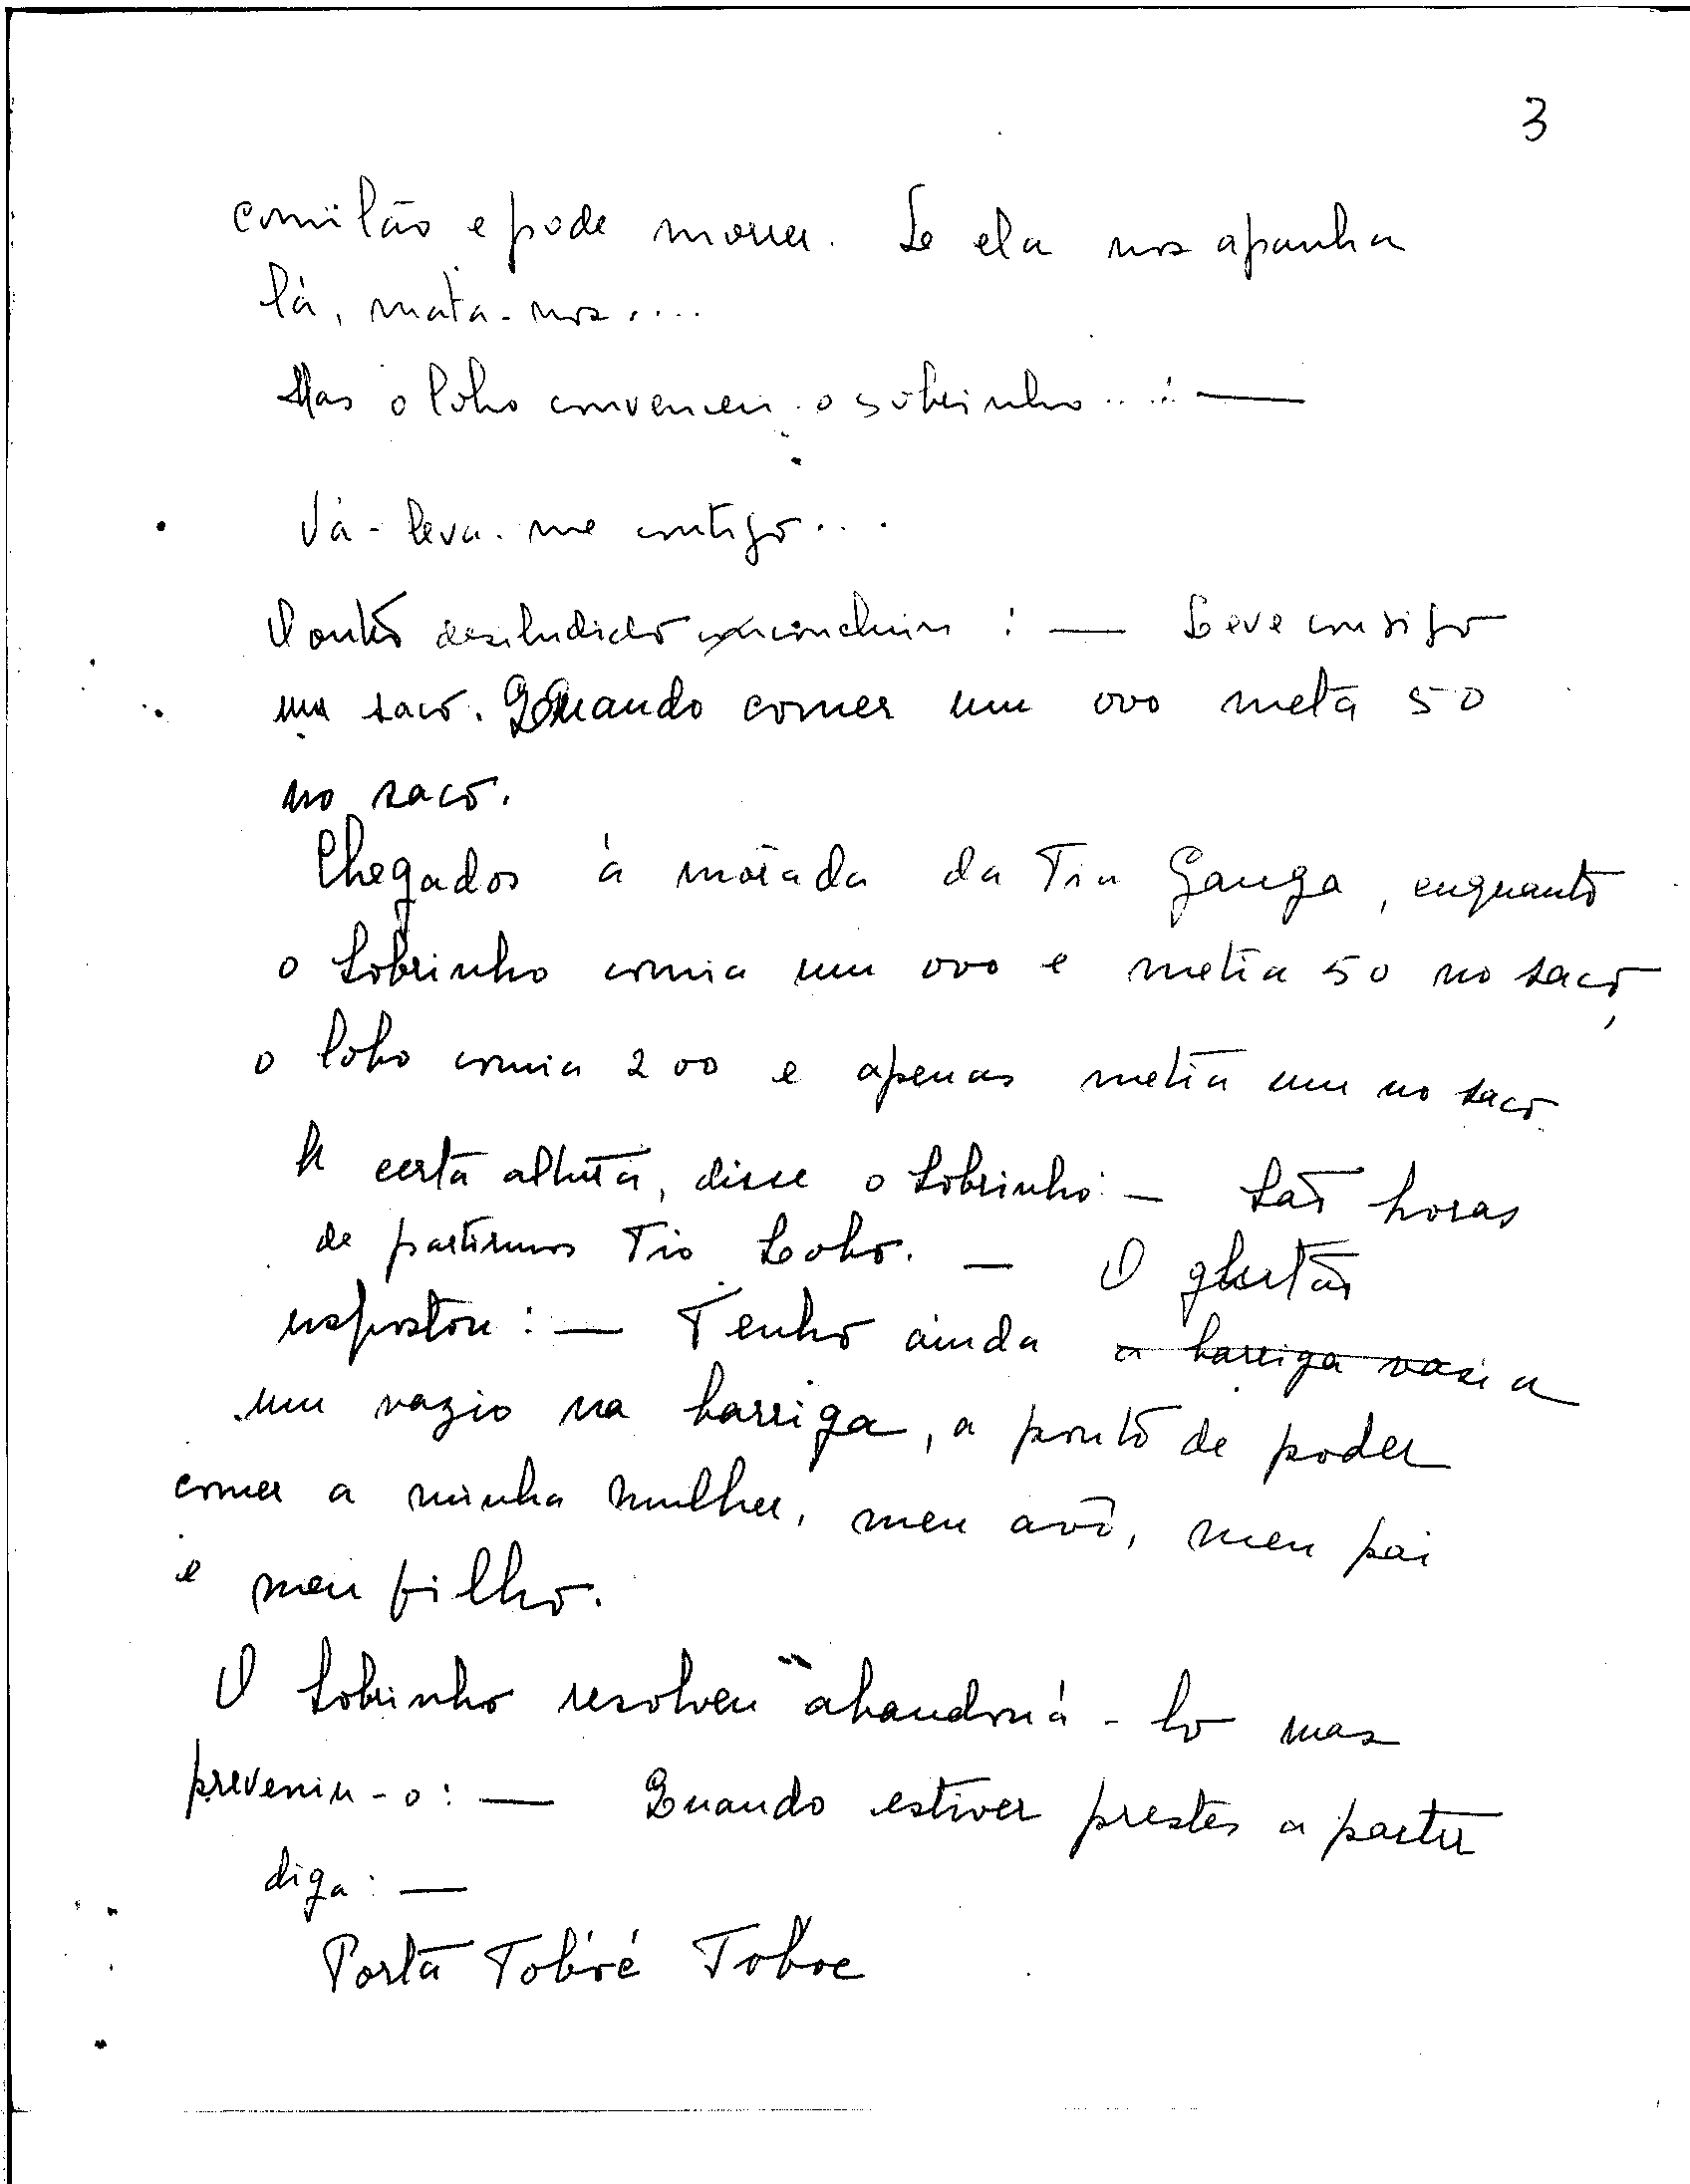 3
comilão e pode morrer. Se ela nos apanha
lá, mata-nos....
Mas o lobo convenceu o sobrinho...: —
Vá-leva-me contigo...
O outro desiludido concluiu : — Leve consigo
um saco. Quando comer um ovo meta 50
no saco.
Chegados à morada da Tia Ganga, enquanto
o Sobrinho comia um ovo e metia 50 no saco,
o lobo comia 200 e apenas metia um no saco.
A certa altura, disse o Sobrinho: — São horas
de partirmos Tio Lobo. — O glutão
respostou : — Tenho ainda a barriga vazia
um vazio na barriga, a ponto de poder
comer a minha mulher, meu avô, meu pai
e meu filho.
O Sobrinho resolveu abandoná-lo mas
preveniu-o: — Quando estiver prestes a partir
diga: —
Porta Tobóé Toboe